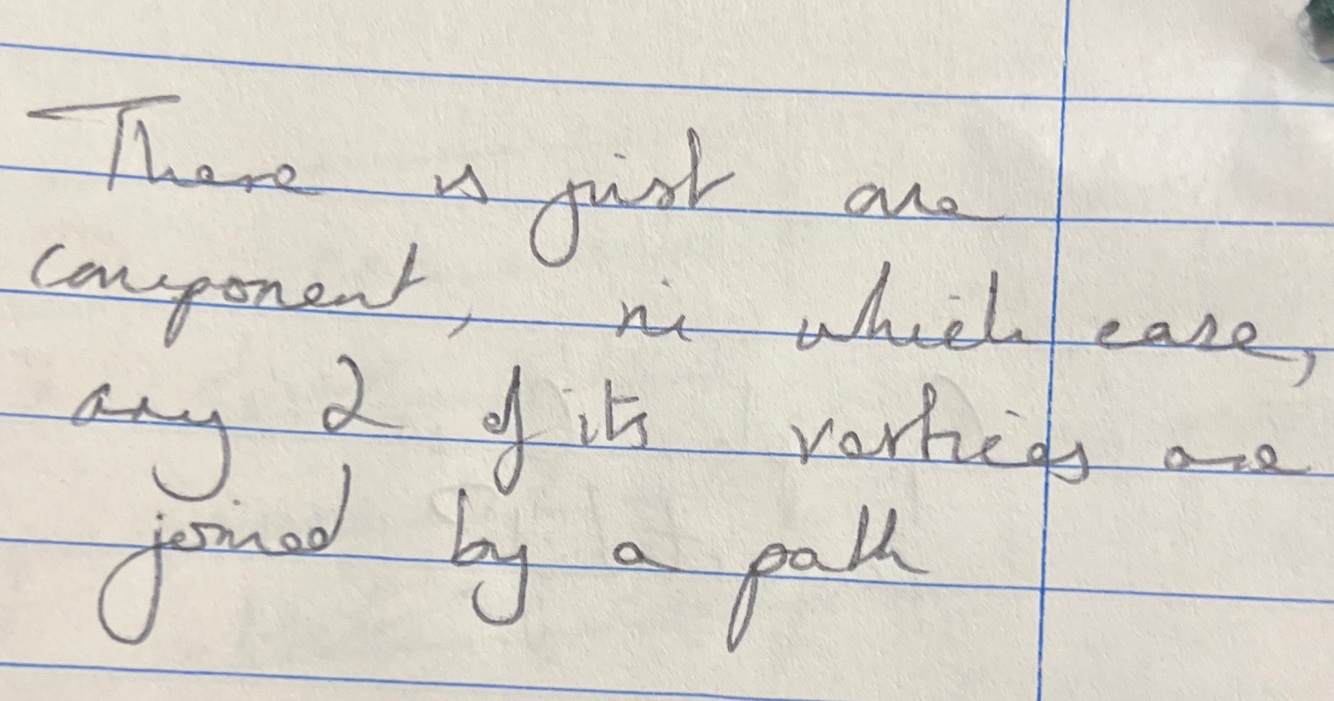 There is just one
component, in which case,
any 2 of its vertices are
joined by a path